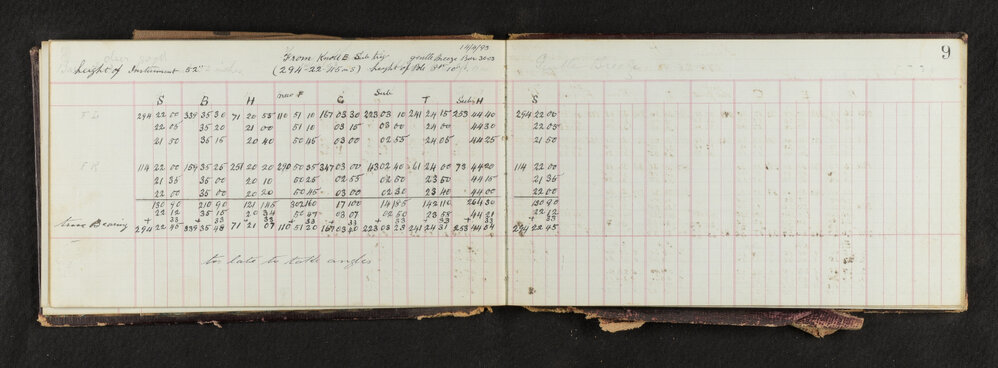 14/4/93
From Knoll E. Sub trig gentle breeze Bar 30.03
height of Instrument 52"
(294-22-45 m S) height of Pole
9
S B H new F G Sub T Sub H S
F L 294 22 00 339 35 30 71 20 55 110 51 10 167 03 30 223 03 10 241 24 15 253 44 40 294 22 00
22 05 35 20 21 00 51 10 03 15 03 00 24 00 44 30 22 05
21 50 35 15 20 40 50 45 03 00 02 55 24 05 44 25 21 50
F R 114 22 00 159 35 25 251 20 20 290 50 35 347 03 00 43 02 40 61 24 00 73 44 20 114 22 00
21 35 35 00 20 10 50 25 02 55 02 50 23 50 44 15 21 35
22 00 35 00 20 20 50 45 03 00 02 30 23 40 44 00 22 00
130 90 210 90 121 145 302 160 17 100 14 185 142 110 264 30 130 90
22 12 35 15 20 34 50 47 03 07 02 50 23 58 44 21 22 12
+ 33 + 33 + 33 + 33 + 33 + 33 + 33 + 33 + 33
true Bearing 294 22 45 339 35 48 71 21 07 110 51 20 167 03 40 223 03 23 241 24 31 253 44 54 294 22 45
too late to take angles